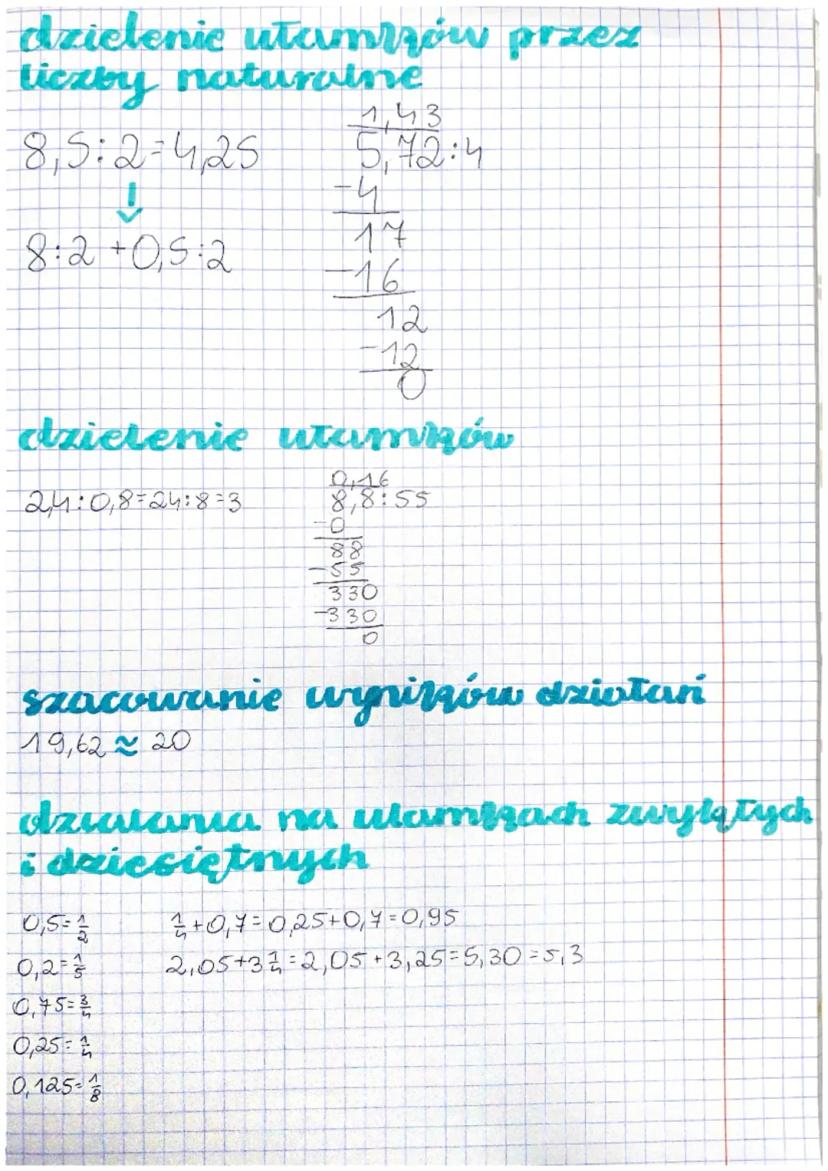 dzielenie ułamków przez
liczby naturalne
8,5:2=4,25
↓
8:2 +0,5:2
1,43
5,72:4
-4
17
-16
12
-12
0
dzielenie ułamków
2,4:0,8=24:8=3
0,16
8,8:55
-0
88
-55
330
-330
0
szacowanie wyników działań
19,62≈20
działania na ułamkach zwykłych
i dziesiętnych
0,5=1/2
1/4+0,7=0,25+0,7=0,95
0,2=1/5
2,05+3 1/4=2,05+3,25=5,30=5,3
0,75=3/4
0,25=1/4
0,125=1/8